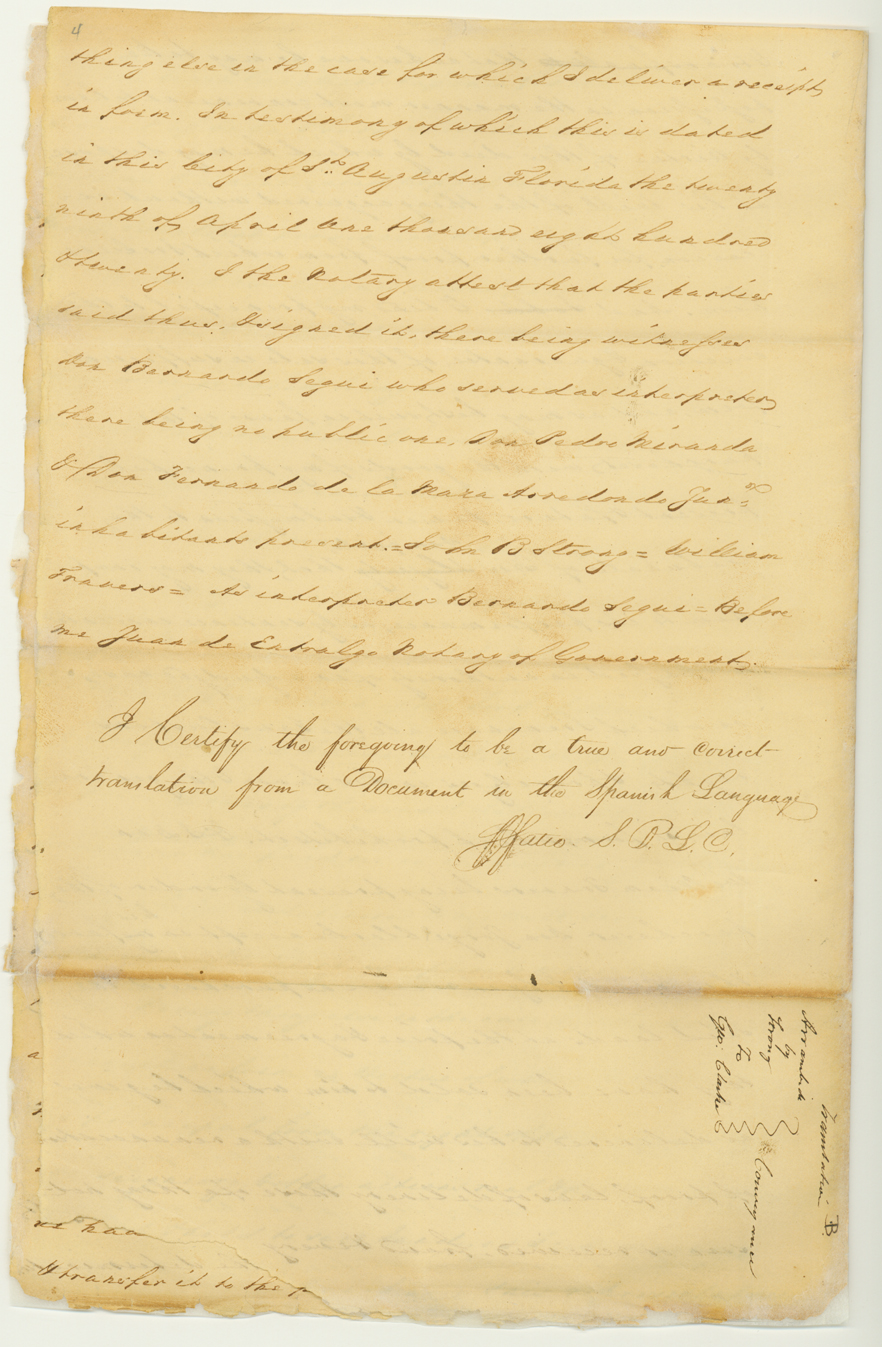 4
thing else in the case for which I deliver a receipt,
in form. In testimony of which this is dated
in this City of St. Augustin Florida the twenty
ninth of April One thousand eight hundred
& twenty. I the Notary attest that the parties
said thus, & signed it, there being witnesses
Don Bernardo Segui who served as interpreter,
there being no public one, Don Pedro Miranda
& Don Fernando de la Maza Arredondo Junr.
inhabitants present. = John B Strong = William
Travers = As interpreter = Bernardo Segui = Before
me Juan de Entralgo Notary of Government.
I Certify the foregoing to be a true and correct
translation from a Document in the Spanish Language
S. P. L. C.
Translation B.
Arrambide
by
Strong
to
Geo: Clarke
Conveyance
& transfer it to the